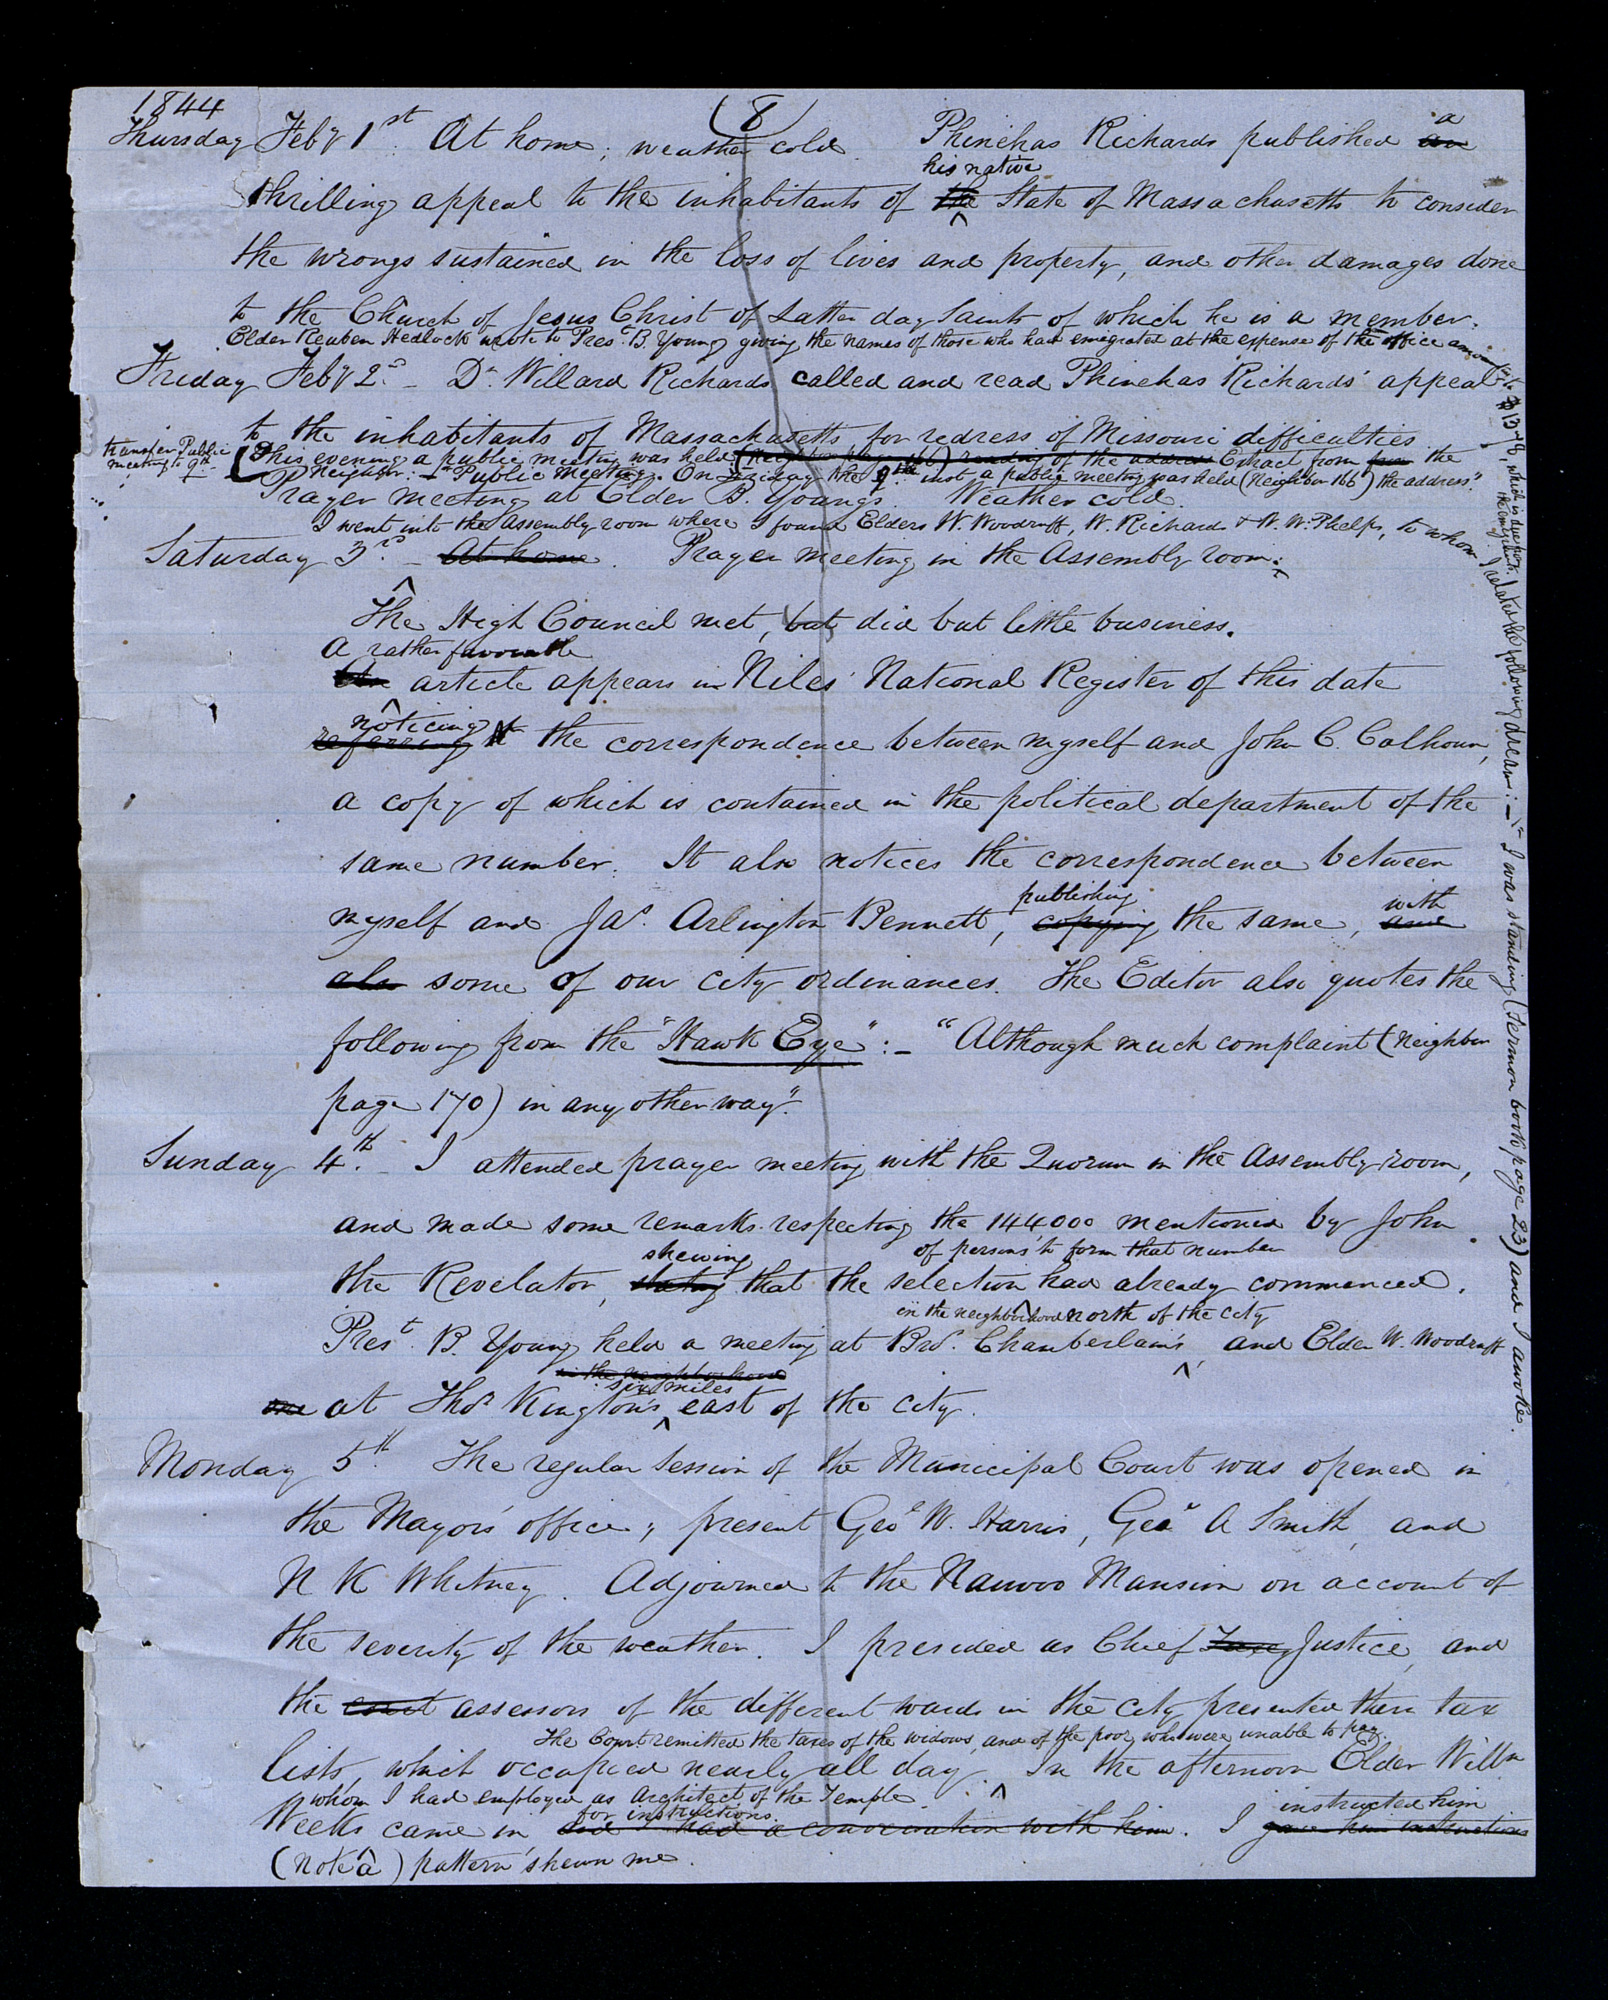 1844
(8)
Thursday Feby 1st. At home; weather cold. Phinehas Richards published an a
his native
thrilling appeal to the inhabitants of the State of Massachusetts to consider
the wrongs sustained in the loss of lives and property, and other damages done
to the Church of Jesus Christ of Latter day Saints of which he is a member.
Elder Reuben Hedlock wrote to Prest. B. Young giving the names of those who had emigrated at the expense of the office amounting to
Friday Feby 2d. – Dr. Willard Richards called and read Phinehas Richards' appeal
to the inhabitants of Massachusetts for redress of Missouri difficulties.
transfer Public
meeting to 9th –
This evening a public meeting was held (Neighbor page 166) reading of the address Extract from the
Neighbor: – "Public Meeting. On Friday the 9th inst a public meeting was held (Neighbor 166) the address".
Prayer meeting at Elder B. Youngs. Weather cold.
I went into the Assembly room where I found Elders W. Woodruff, W. Richards & W. W. Phelps, to whom
I related the following dream: – "I was standing (Sermon book page 23) and I awoke.
Saturday 3rd. – At home. Prayer meeting in the Assembly room.
The High Council met, but did but little business.
A rather favorable
An article appears in Niles' National Register of this date
noticing
referring to the correspondence between myself and John C. Calhoun,
a copy of which is contained in the political department of the
same number. It also notices the correspondence between
publishing with
myself and Jas. Arlington Bennett, copying the same, and
also some of our city ordinances. The Editor also quotes the
following from the "Hawk Eye": – "Although much complaint (Neighbor
page 170) in any other way."
Sunday 4th. – I attended prayer meeting with the Quorum in the Assembly room,
and made some remarks respecting the 144,000 mentioned by John
shewing of persons to form that number
the Revelator, stating that the selection had already commenced.
in the neighborhood north of the city
Prest. B. Young held a meeting at Bro. Chamberlain's, and Elder W. Woodruff
in the neighborhood
six miles
one at Thos Kington's, east of the city.
Monday 5th. The regular Session of the Municipal Court was opened in
the Mayor's office; present Geo. W. Harris, Geo. A Smith, and
N K Whitney. Adjourned to the Nauvoo Mansion on account of
the severity of the weather. I presided as Chief Justice, and
the court assessors of the different wards in the city presented their tax
The Court remitted the taxes of the widows, and of the poor who were unable to pay.
lists, which occupied nearly all day. In the afternoon Elder Willm
whom I had employed as Architect of the Temple
for instructions. instructed him
Weeks came in, and had a conversation with him. I gave him instructions
(note a) pattern shewn me.